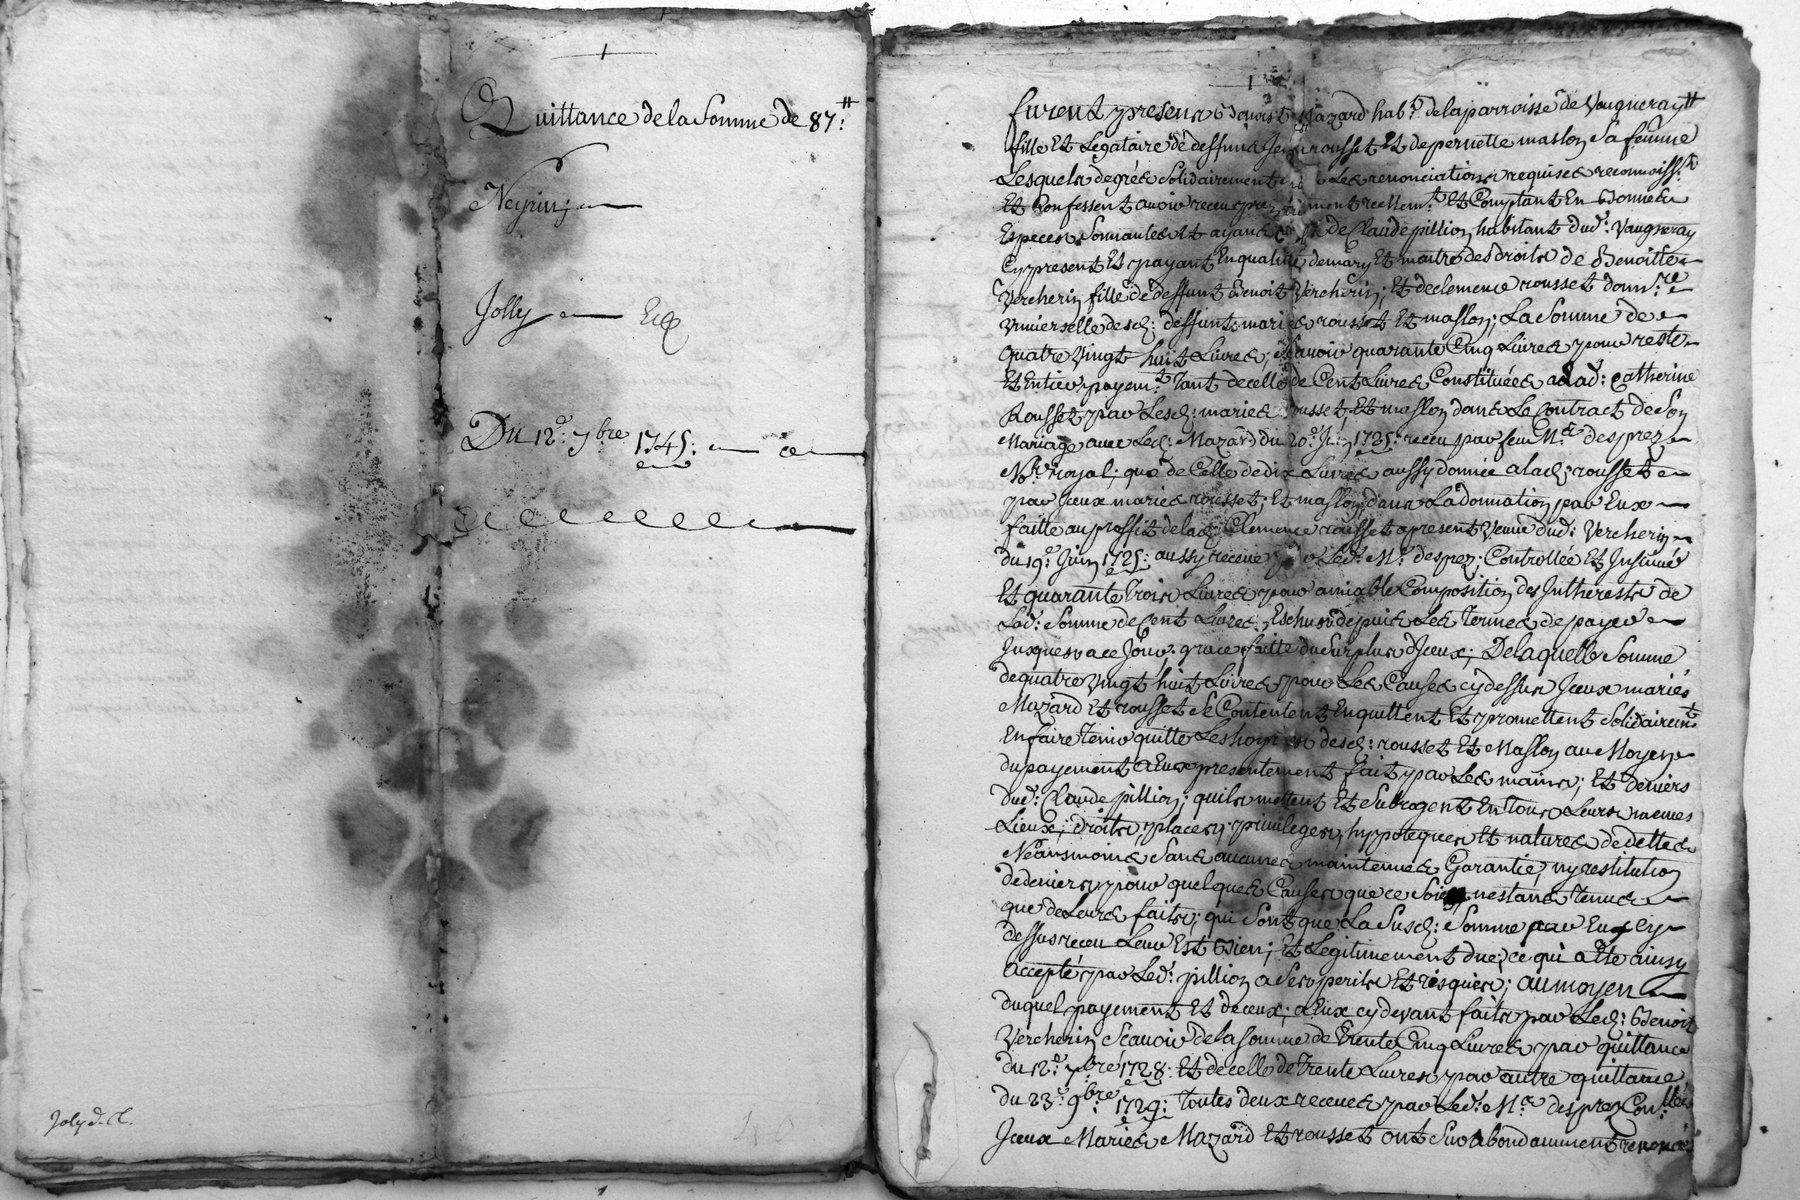 Quittance de la Somme de 87:tt
Neyrin;
Jolly
Du 12e: 7bre 1745:
Joly d. Cl.
furent presens Benoist Mazard habt. de la parroisse de Vaugneray
fille Et Legataire de deffunt rousset Et de pernette maslon Sa femme
Lesquels de gré Solidairement Les renonciations requises reconnoiss:
Et Confessent avoir receu reellemt. Et Comptant En Bonnes
Especes Sonnantes Et ayant de Claude pillion habitant dud: Vaugneray
Cy present Et payant En qualité de mary Et maitre des droits de Benoitte
Vercherin fille de deffunt Benoit Vercherin; Et de clemence rousset donnre
Universelle desd: deffunts mariés rousset Et maslon; La Somme de
quatre Vingt huit Livres; Scavoir quarante Cinq Livres pour reste
Et Entier payemt. Tant de celle de Cent Livres Constituées a Lad: Catherine
Rousset par Lesd: mariés rousset, Et maslon dans Le Contract de Son
Mariage avec Led: Mazard du 20e: 1725: receu par feu Me desprez
Nore royal; que de Celle de dix Livres aussy donnée a lad: rousset
par yceux mariés rousset; Et maslon dans La donnation par Eux
faitte au proffit de lad: Clemence rousset a present Veuve dud: Vercherin
du 19e: Juin 1725: aussy receue Led: Me: desprez; Controllée Et Insinuée
Et quarante Trois Livres pour amiable Composition des Intherests de
Lad: Somme de Cent Livres Eschus depuis Les Termes de payer
Jusques a ce Jour; grace faitte du Surplus d'Jceux; De laquelle Somme
de quatre Vingt huit Livres pour Les Causes cy dessus Jceux mariés
Mazard Et rousset Se Contentent En quittent Et promettent Solidairemt
En faire Tenir quitte Les hoirs desd: rousset Et Maslon au Moyen
du payement a Eux presentement fait par Les mains; Et deniers
dud: Claude pillion; quils mettent Et Subrogent En Tous Leurs memes
Lieux; droits, places; privileges, hyppoteques Et natures de dettes
Neansmoins Sans aucunes maintenues Garantie, ny restitution
de deniers pour quelques Causes que ce Soit nestans Tenus
que de Leurs faits; qui Sont que La Susd: Somme par Eux Cy
dessus receu Leur Est Bien; Et Legitimement due; ce qui a Eté ainsy
Accepté par Led: pillion a Ses perils Et risques; au moyen
du quel payement Et de ceux; a Eux cy devant faits par Led: Benoit
Vercherin Scavoir de la Somme de Trente Cinq Livres par quittance
du 12e: 7bre 1728: Et de celle de Trente Livres par autre quittance
du 23e: 9bre: 1729: Toutes deux receues par Led: Me desprez Conllées
Jceux Mariés Mazard Et rousset ont Surabondamment renoncé